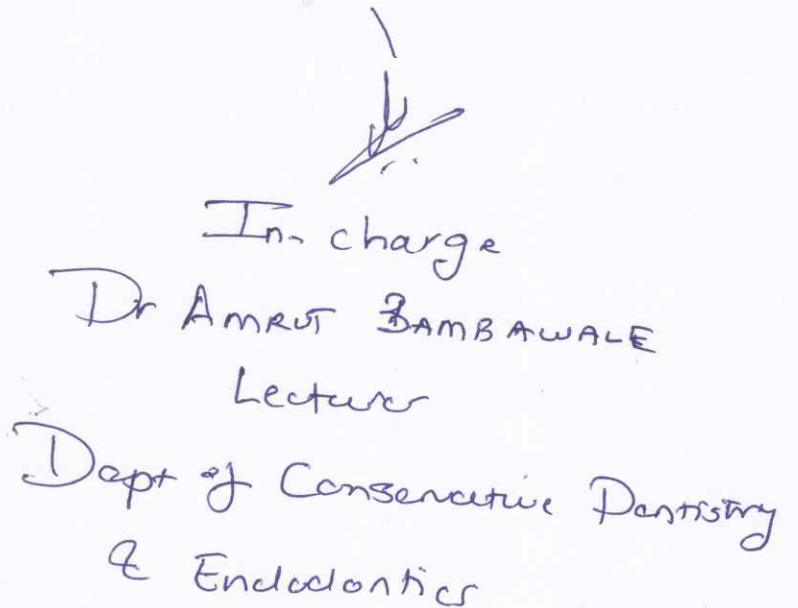 In-charge
Dr AMRUT BAMBAWALE
Lecturer
Dept of Conservative Dentistry
& Endodontics